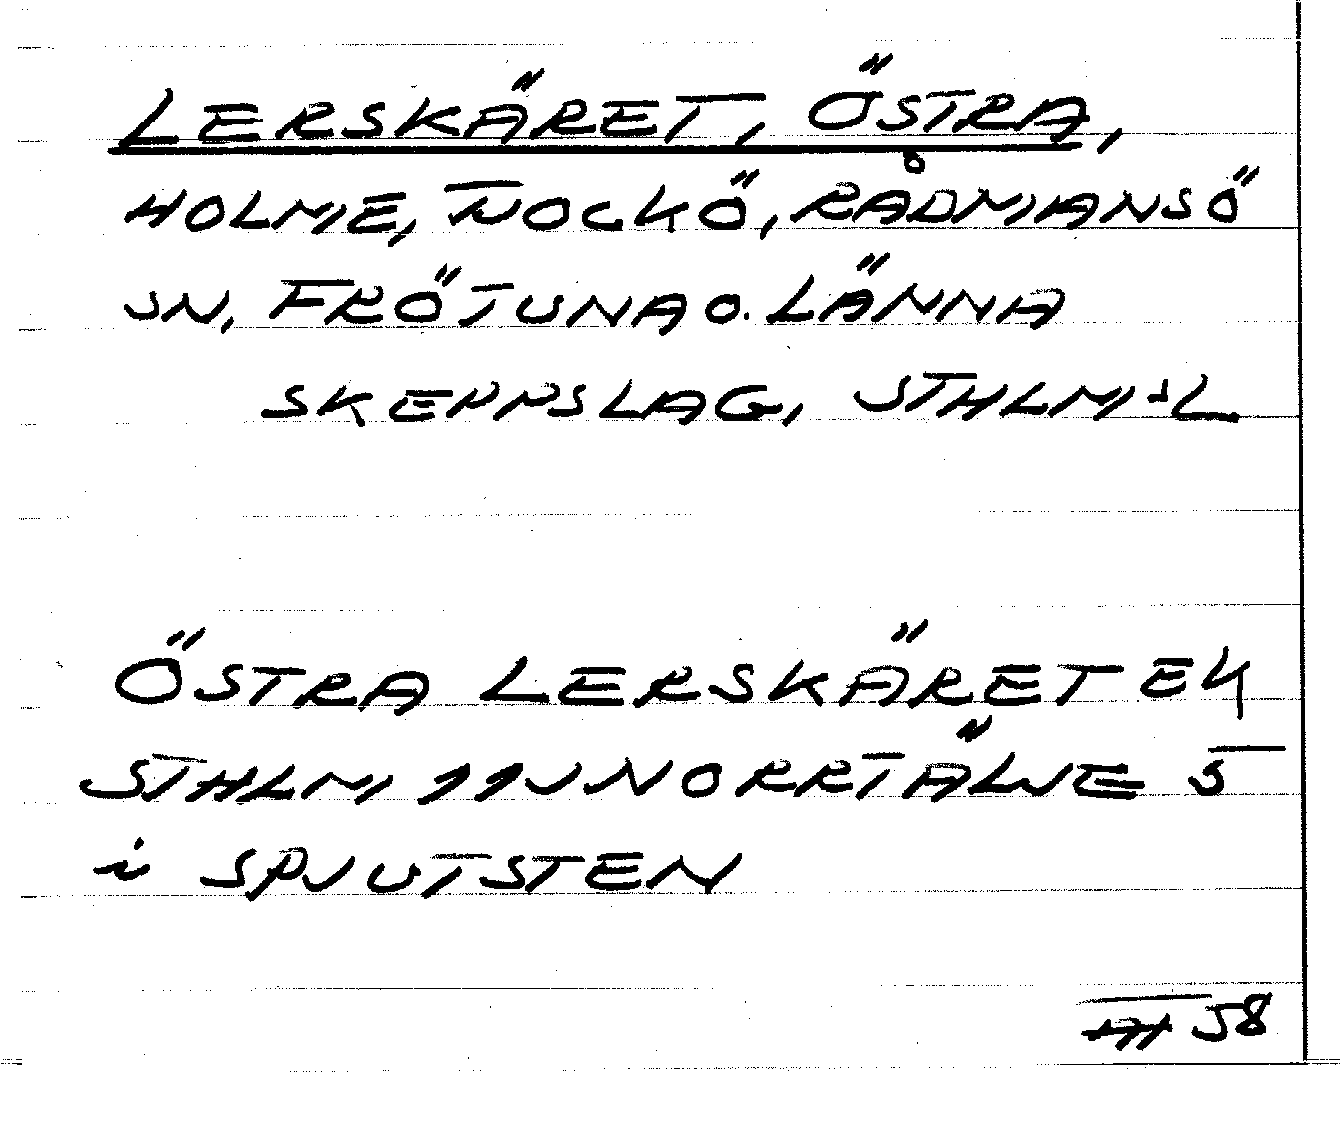 LERSKÄRET, ÖSTRA,
HOLME, TJOCKÖ, RÅDMANSÖ
SN, FRÖTUNA O. LÄNNA
SKEPPSLAG, STHLMSL
ÖSTRA LERSKÄRET EK
STHLM 11J NORRTÄLJE
i SPJUTSTEN
58